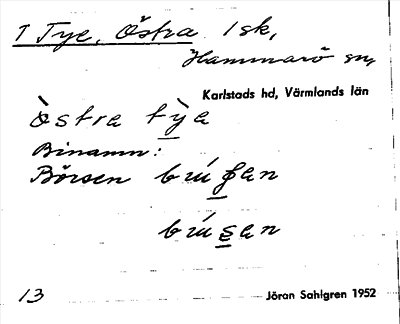 1 Tye, Östra 1 sk,
Hammarö sn,
Karlstads hd, Värmlands län
òstra tỳa
Binamn:
Börsen bú∫an
búsan
13 Jöran Sahlgren 1952